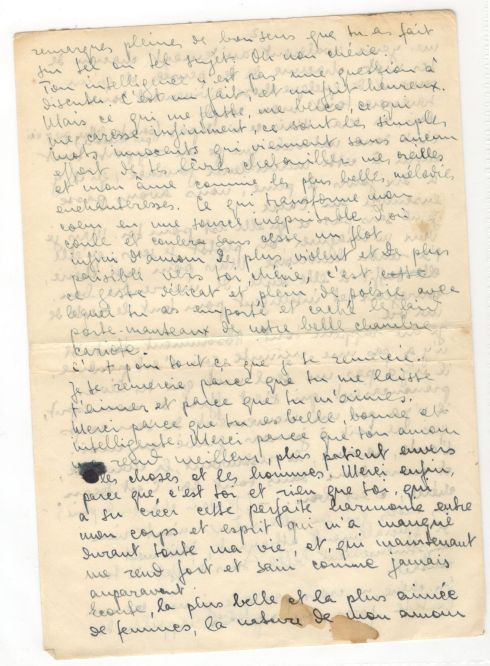 remarques pleines de bon sens que tu as fait
sur tel ou tel sujet. Oh non chérie
Ton intelligence n'est pas une question à
discuter. C'est un fait et un fait heureux.
Mais ce qui me flatte, me berce, ce qui
me caresse infiniment, ce sont les simples
mots innocents qui viennent sans aucun
effort de tes lèvres chatouiller mes oreilles
et mon âme comme les plus belles mélodies
enchanteresses. Ce qui transforme mon
cœur en une source inépuisable d'où
coule et coulera sans cesse un flot
infini d'amour le plus violent et le plus
paisible vers toi chérie, c'est cette
ce geste délicat et plein de poésie avec
lequel tu as emporté et caché le
porte-manteaux de notre belle chambre
c'est pour tout ça que je te remercie.
Je te remercie parce que tu me laisse
t'aimer et parce que tu m'aimes.
Merci parce que tu es belle, bonne et
intelligente. Merci parce que ton amour
me rend meilleur, plus patient envers
les choses et les hommes. Merci enfin,
parce que, c'est toi et rien que toi, qui
a su créer cette parfaite harmonie entre
mon corps et esprit qui m'a manqué
durant toute ma vie, et, qui maintenant
me rend fort et sain comme jamais
auparavant
Ecoute, la plus belle et la plus aimée
de femmes, la nature de mon amour